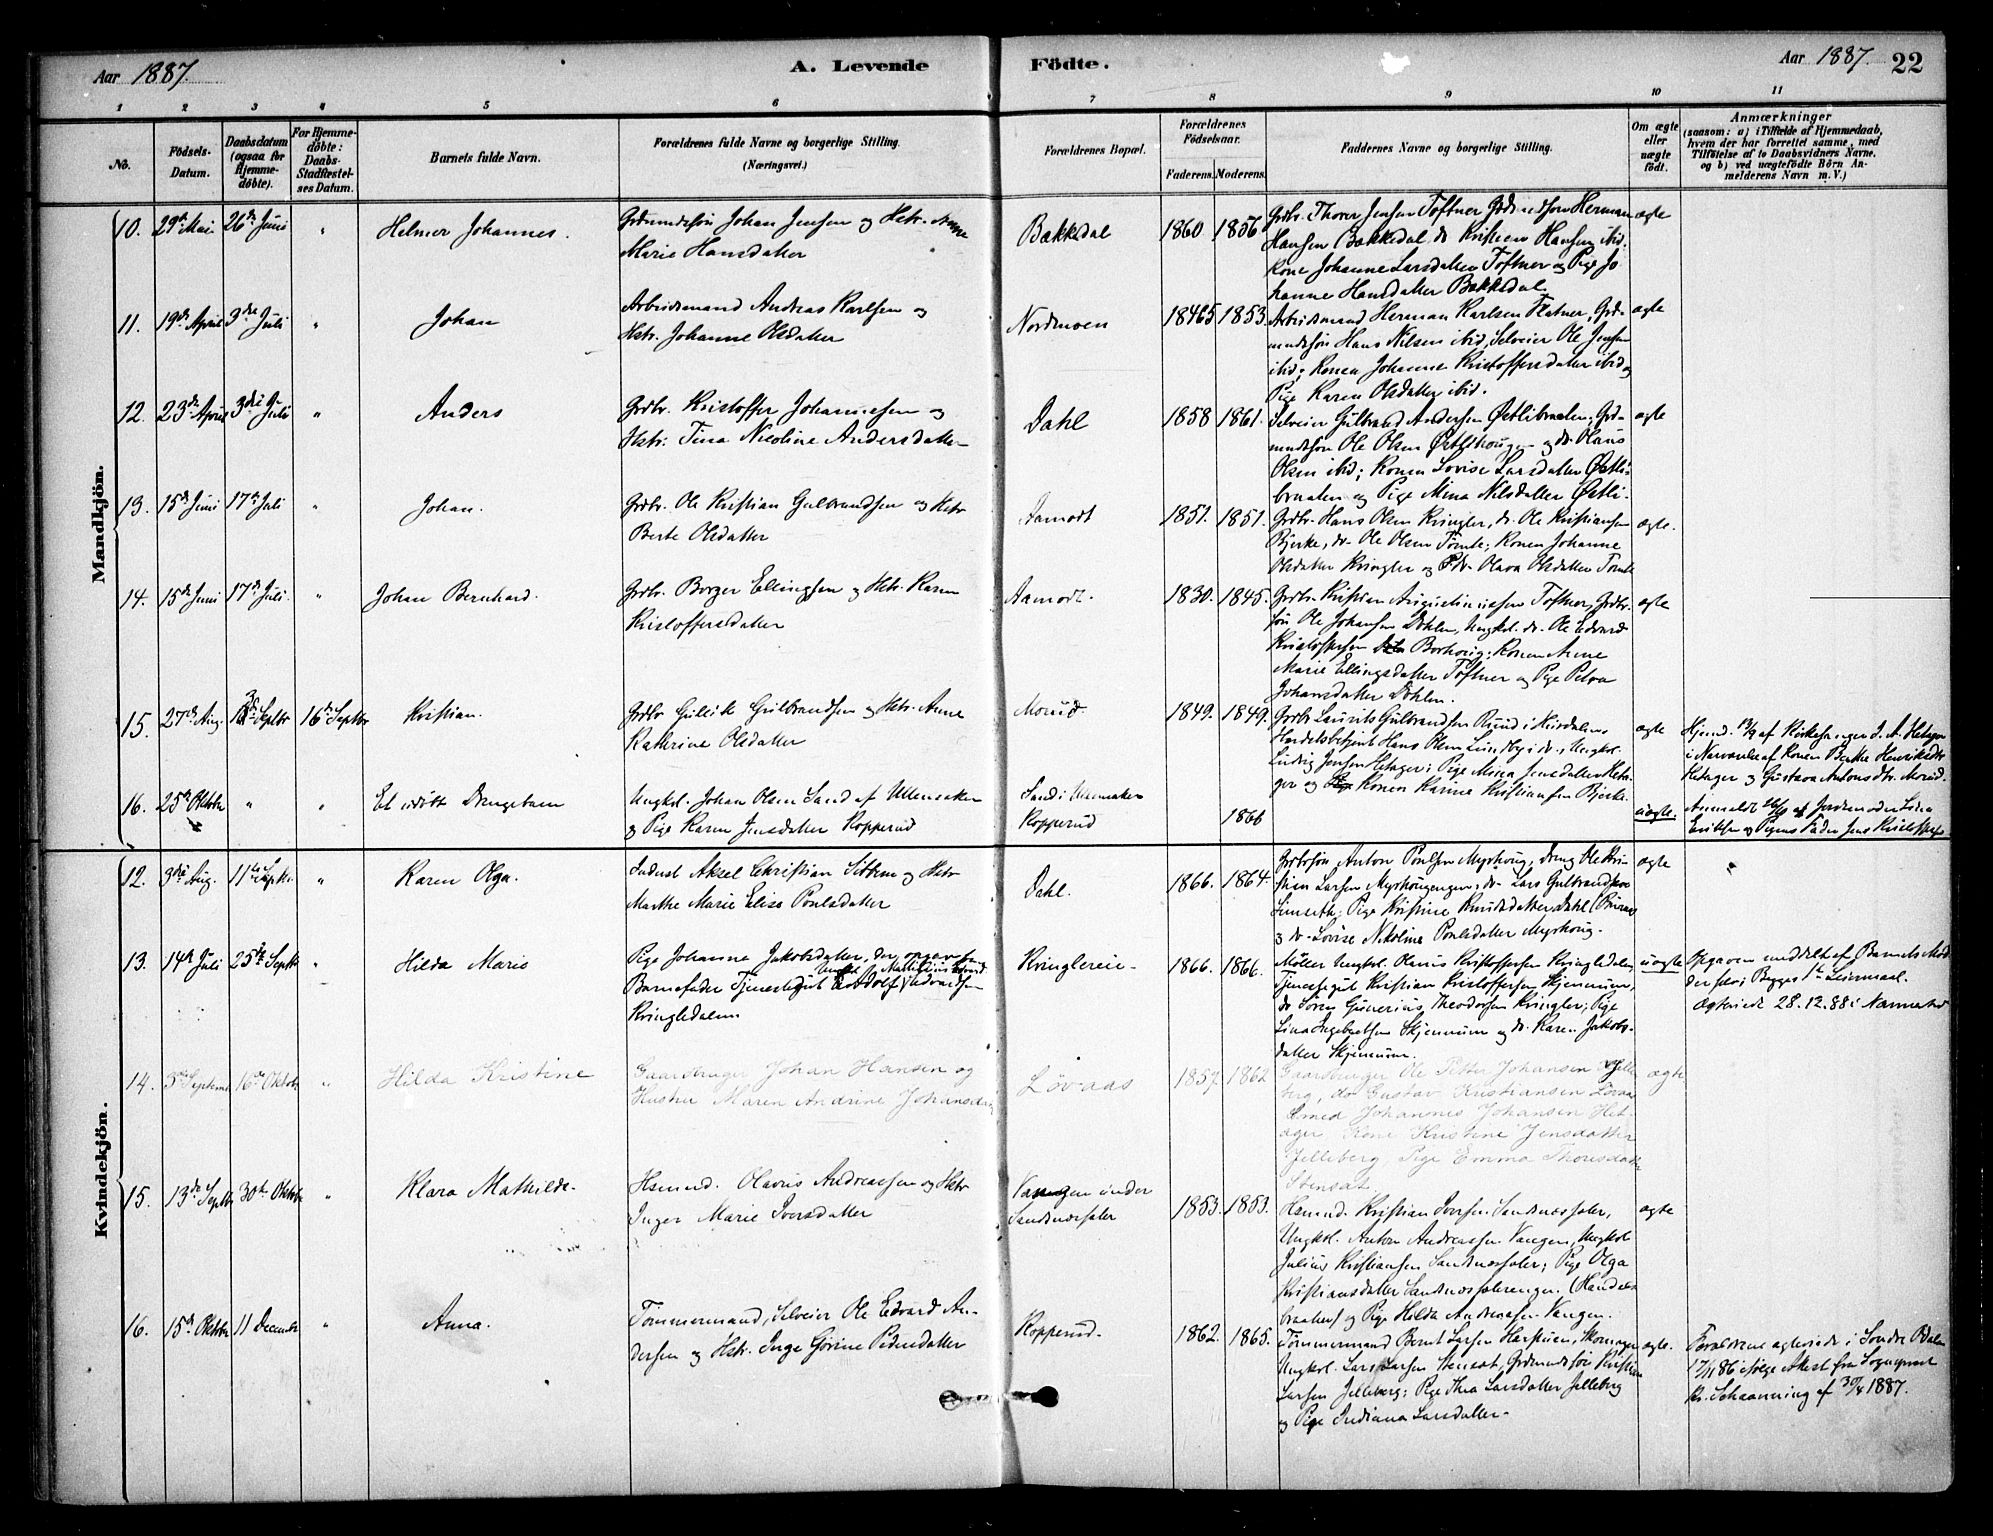 Aar 1887.
A. Levende Födte.
Aar 1887. 22
1 2 3 4 5 6 7 8 9 10 11
No.
Födsels-Datum.
Daabsdatum (ogsaa for Hjemme-döbte).
For Hjemme-döbte: Daabs-Stadfæstel-ses Datum.
Barnets fulde Navn.
Forældrenes fulde Navne og borgerlige Stilling. (Næringsvei.)
Forældrenes Bopæl.
Forældrenes Födselsaar.
Faderens. Moderens.
Faddernes Navne og borgerlige Stilling.
Om ægte eller uægte födt.
Anmærkninger
(saasom: a) i Tilfælde af Hjemmedaab,
hvem der har forrettet samme, med
Tilföielse af to Daabsvidners Navne,
og b) ved uægtefödte Börn An-
melderens Navn m. V.)
Mandkjön.
10. 29de Mai 26de Juni " Helmer Johannes. Grdmandssön Johan Jensen og Hstr. Anne
Marie Hansdatter
Bækkedal 1860 1856
Grdbr. Thorer Jensen Toftner Grdmdssön Herman
Hansen Bækkedal, do Kristian Hansen ibid.
Kone Johanne Larsdatter Toftner og Pige Jo
hanne Hansdatter Bækkedal
ægte
11. 19de April 3die Juli " Johan
Arbeidsmand Andreas Karlsen og
Hstr. Johanne Olsdatter
Nordmoen 1853.
Arbeidsmand Herman Karlsen Flatner, Grd-
mandssön Hans Nilsen ibid, Selveier Ole Jensen
ibid; Konen Johanne Kristoffersdatter ibid og
Pige Karen Olsdatter ibid.
ægte
12. 23de April 3die Juli " Anders
Grdbr. Kristoffer Johannesen og
Hstr. Tina Nicoline Andersdatter
Dahl 1858 1861.
Selveier Gulbrand Andersen Østlibraaten, Grd-
mandssön Ole Olsen Østlihougen og do Olaus
Olsen ibid; Konen Lovise Larsdatter Østli-
braaten og Pige Mina Nilsdatter Østli-
ægte
13. 15de Juni 17de Juli " Johan.
Grdbr. Ole Kristian Gulbrandsen og Hstr
Berte Olsdatter
Aamodt 1851. 1851.
Grdbr. Hans Olsen Kringler, do. Ole Kristiansen
Bjerke, do. Ole Olsen Tömte; Konen Johanne
Olsdatter Kringler og do. Olava Olsdatter Tömte
ægte.
14. 15de Juni 17de Juli. " Johan Bernhard.
Grdbr. Borger Ellingsen og Hstr. Karen
Kristoffersdatter
Aamodt. 1830. 1845.
Grdbr. Kristian Augustinussen Toftner, Grdbr.
sön Ole Johansen Döhlen, Ungkl. do. Ole Edvard
Kristoffersen Borhoug; Konen Anne
Marie Ellingsdatter Toftner og Pige Petra
Johansdatter Döhlen.
ægte
15. 27de Aug. Septbr 16de Septbr Kristian.
Grdbr Gulbrandsen og Hstr. Anne
Kathrine Olsdatter
Morud. 1849. 1849.
Grdbr Laurits Gulbrandsen Ruud i Hurdalen,
Handelsbetjent Hans Olsen Lundby i do., Ungkl.
Ludvig Jensen Hetager; Pige Mina Jensdatter Heta-
ger og Konen Karine Kristiansen Bjerke.
ægte
Hjemd. 13/9 af Kirkesanger J. A. Hetager
i Nærværelse af Konen Berthe Henriksdtr
Hetager og Gustava Antonsdtr. Morud.
16. 25de Oktbr " " Et udöbt Drengebarn
Ungkl. Johan Olsen Sand af Ullensaker
og Pige Karen Jensdatter Kopperud
Sand i Ullensaker
Kopperud
1866
uægte.
Anmeldt af Jordemoder Lina
Eriksen og Pigens Fader Jens Kristoffersen
Kvindekjön.
12. 3die Aug. 11te Septbr. " Karen Olga.
Indust Aksel Christian Sittem og Hstr
Marthe Marie Elise Poulsdatter
Dahl. 1866. 1864.
Grdbrsön Anton Poulsen Myrhoug, dreng Ole Kri-
stian Larsen Myrhougengen, do. Lars Gulbrandsen
Linseth; Pige Kristine Knudsdatter Dahl
og do. Lovise Nikoline Poulsdatter Myrhoug.
ægte
13. 14de Juli 25de Septbr " Hilda Marie
Pige Johanne Jakobsdatter, der opgav som
Barnefader Tjenestegut Adolf Edvardsen
Kringledalen.
Kringlereie 1866. 1866.
Möller Ungkl. Olaus Kristoffersen Kringledalen,
Tjenestegut Kristian Kristoffersen Skjennum,
do Sören Gunerius Theodorsen Kringler; Pige
Lina Ingebretsen Skjennum og do. Karen Jakobs-
datter Skjennum.
uægte
Opgaven meddelt af Barnets Mo-
der selv; Begges 1ste Leiermaal.
Ægteviede 28.12.88 i Nannestad
14. 16de Oktbr " Hilda Kristine
Gaardbruger Johan Hansen og
Hustru Maren Andrine Johansdtr
Lövaas 1857. 1862
Gaardbruger Ole Petter Johansen Jelle
berg, do Gustav Kristiansen Lövaas
Smed Johannes Johansen Het-
ager Kone Kristine Jensdatter
Jelleberg Pige Emma Thorsdatter
Stensæt
ægte
15. 13de Septbr 30te Oktbr " Klara Mathilde.
Hsmnd. Olavus Andreassen og Hstr
Inger Marie Iversdatter
Vangen under
Sandsnæssæter
1853. 1853.
Hsmnd. Kristian Iversen Sandsnæssæter,
Ungkl. Anton Andreassen Vangen, Ungkl
Julius Kristiansen Sandsnæssæter; Pige Olga
Kristiansdatter
og Pige Hilda Andreassen Vangen.
ægte
16. 15de Oktbr 11 Decembr " Anna.
Tömmermand, Selveier Ole Edvard An-
dersen og Hstr. Inge Görine Pedersdatter
Kopperud. 1862. 1865.
Tömmermand Bernt Larsen, Skomager
Ungkl. Lars Larsen Stensæt, Grdmandssön Kristian
Larsen Jelleberg; Pige Thea Larsdatter Jelleberg
og Pige Indiana Larsdatter
ægte.
Forældrene ægteviede i Söndre Odalen
17/11 86 ifölge Attest fra Sogneprest
Kr. Schaanning af 30/4 1887.